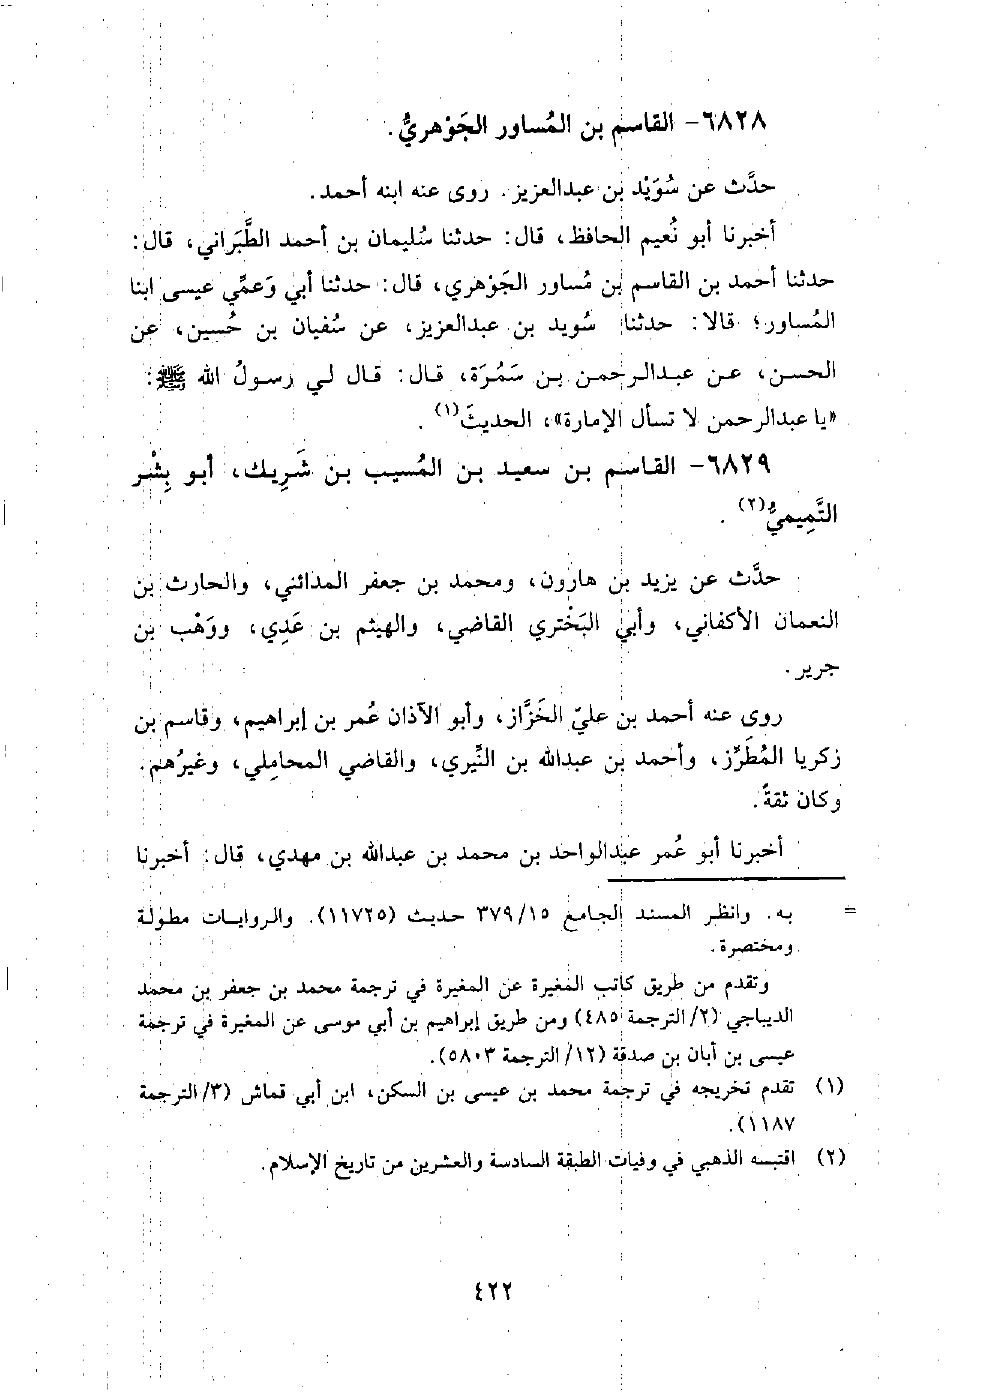 ٦٨٢٨- القاسم بن المُساور الجَوْهريُّ.
حدَّث عن سُوَيْد بن عبدالعزيز. روى عنه ابنه أحمد.
أخبرنا أبو نُعيم الحافظ، قال: حدثنا سُليمان بن أحمد الطَّبَراني، قال:
حدثنا أحمد بن القاسم بن مُساور الجَوْهري، قال: حدثنا أبي وَعمِّي عيسى ابنا
المُساور؛ قالا: حدثنا سُويد بن عبدالعزيز، عن سُفيان بن حُسين، عن
الحسن، عن عبدالرحمن بن سَمُرَة، قال: قال لي رسولُ الله ﷺ:
«يا عبدالرحمن لا تسأل الإمارة»، الحديثَ(١).
٦٨٢٩- القاسم بن سعيد بن المُسيب بن شَرِيك، أبو بِشْر
التَّمِيميُّ(٢).
حدَّث عن يزيد بن هارون، ومحمد بن جعفر المدائني، والحارث بن
النعمان الأكفاني، وأبي البَخْتري القاضي، والهيثم بن عَدِي، ووَهْب بن
جرير.
روى عنه أحمد بن عليّ الخَزَّاز، وأبو الآذان عُمر بن إبراهيم، وقاسم بن
زكريا المُطَرِّز، وأحمد بن عبدالله بن النِّيري، والقاضي المحاملي، وغيرُهم.
وكان ثقةً.
أخبرنا أبو عُمر عبدالواحد بن محمد بن عبدالله بن مهدي، قال: أخبرنا
= به. وانظر المسند الجامع ١٥/ ٣٧٩ حديث (١١٧٢٥). والروايات مطولة
ومختصرة.
وتقدم من طريق كاتب المغيرة عن المغيرة في ترجمة محمد بن جعفر بن محمد
الديباجي (٢/ الترجمة ٤٨٥) ومن طريق إبراهيم بن أبي موسى عن المغيرة في ترجمة
عيسى بن أبان بن صدقة (١٢/ الترجمة ٥٨٠٣).
(١) تقدم تخريجه في ترجمة محمد بن عيسى بن السكن، ابن أبي قماش (٣/ الترجمة
١١٨٧).
(٢) اقتبسه الذهبي في وفيات الطبقة السادسة والعشرين من تاريخ الإسلام.
٤٢٢